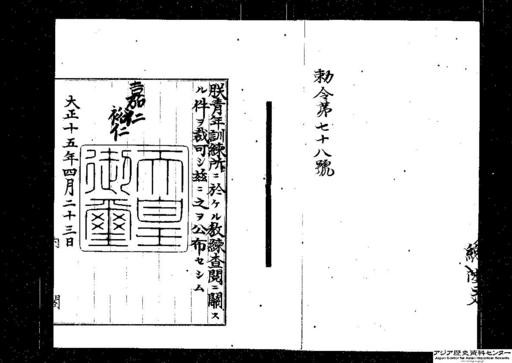 勅令第七十八號
朕青年訓練所ニ於ケル教練査閲ニ關ス
ル件ヲ裁可シ茲ニ之ヲ公布セシム
嘉仁
裕仁
天皇
御璽
大正十五年四月二十三日
内閣
アジア歴史資料センター
Japan Center for Asian Historical Records